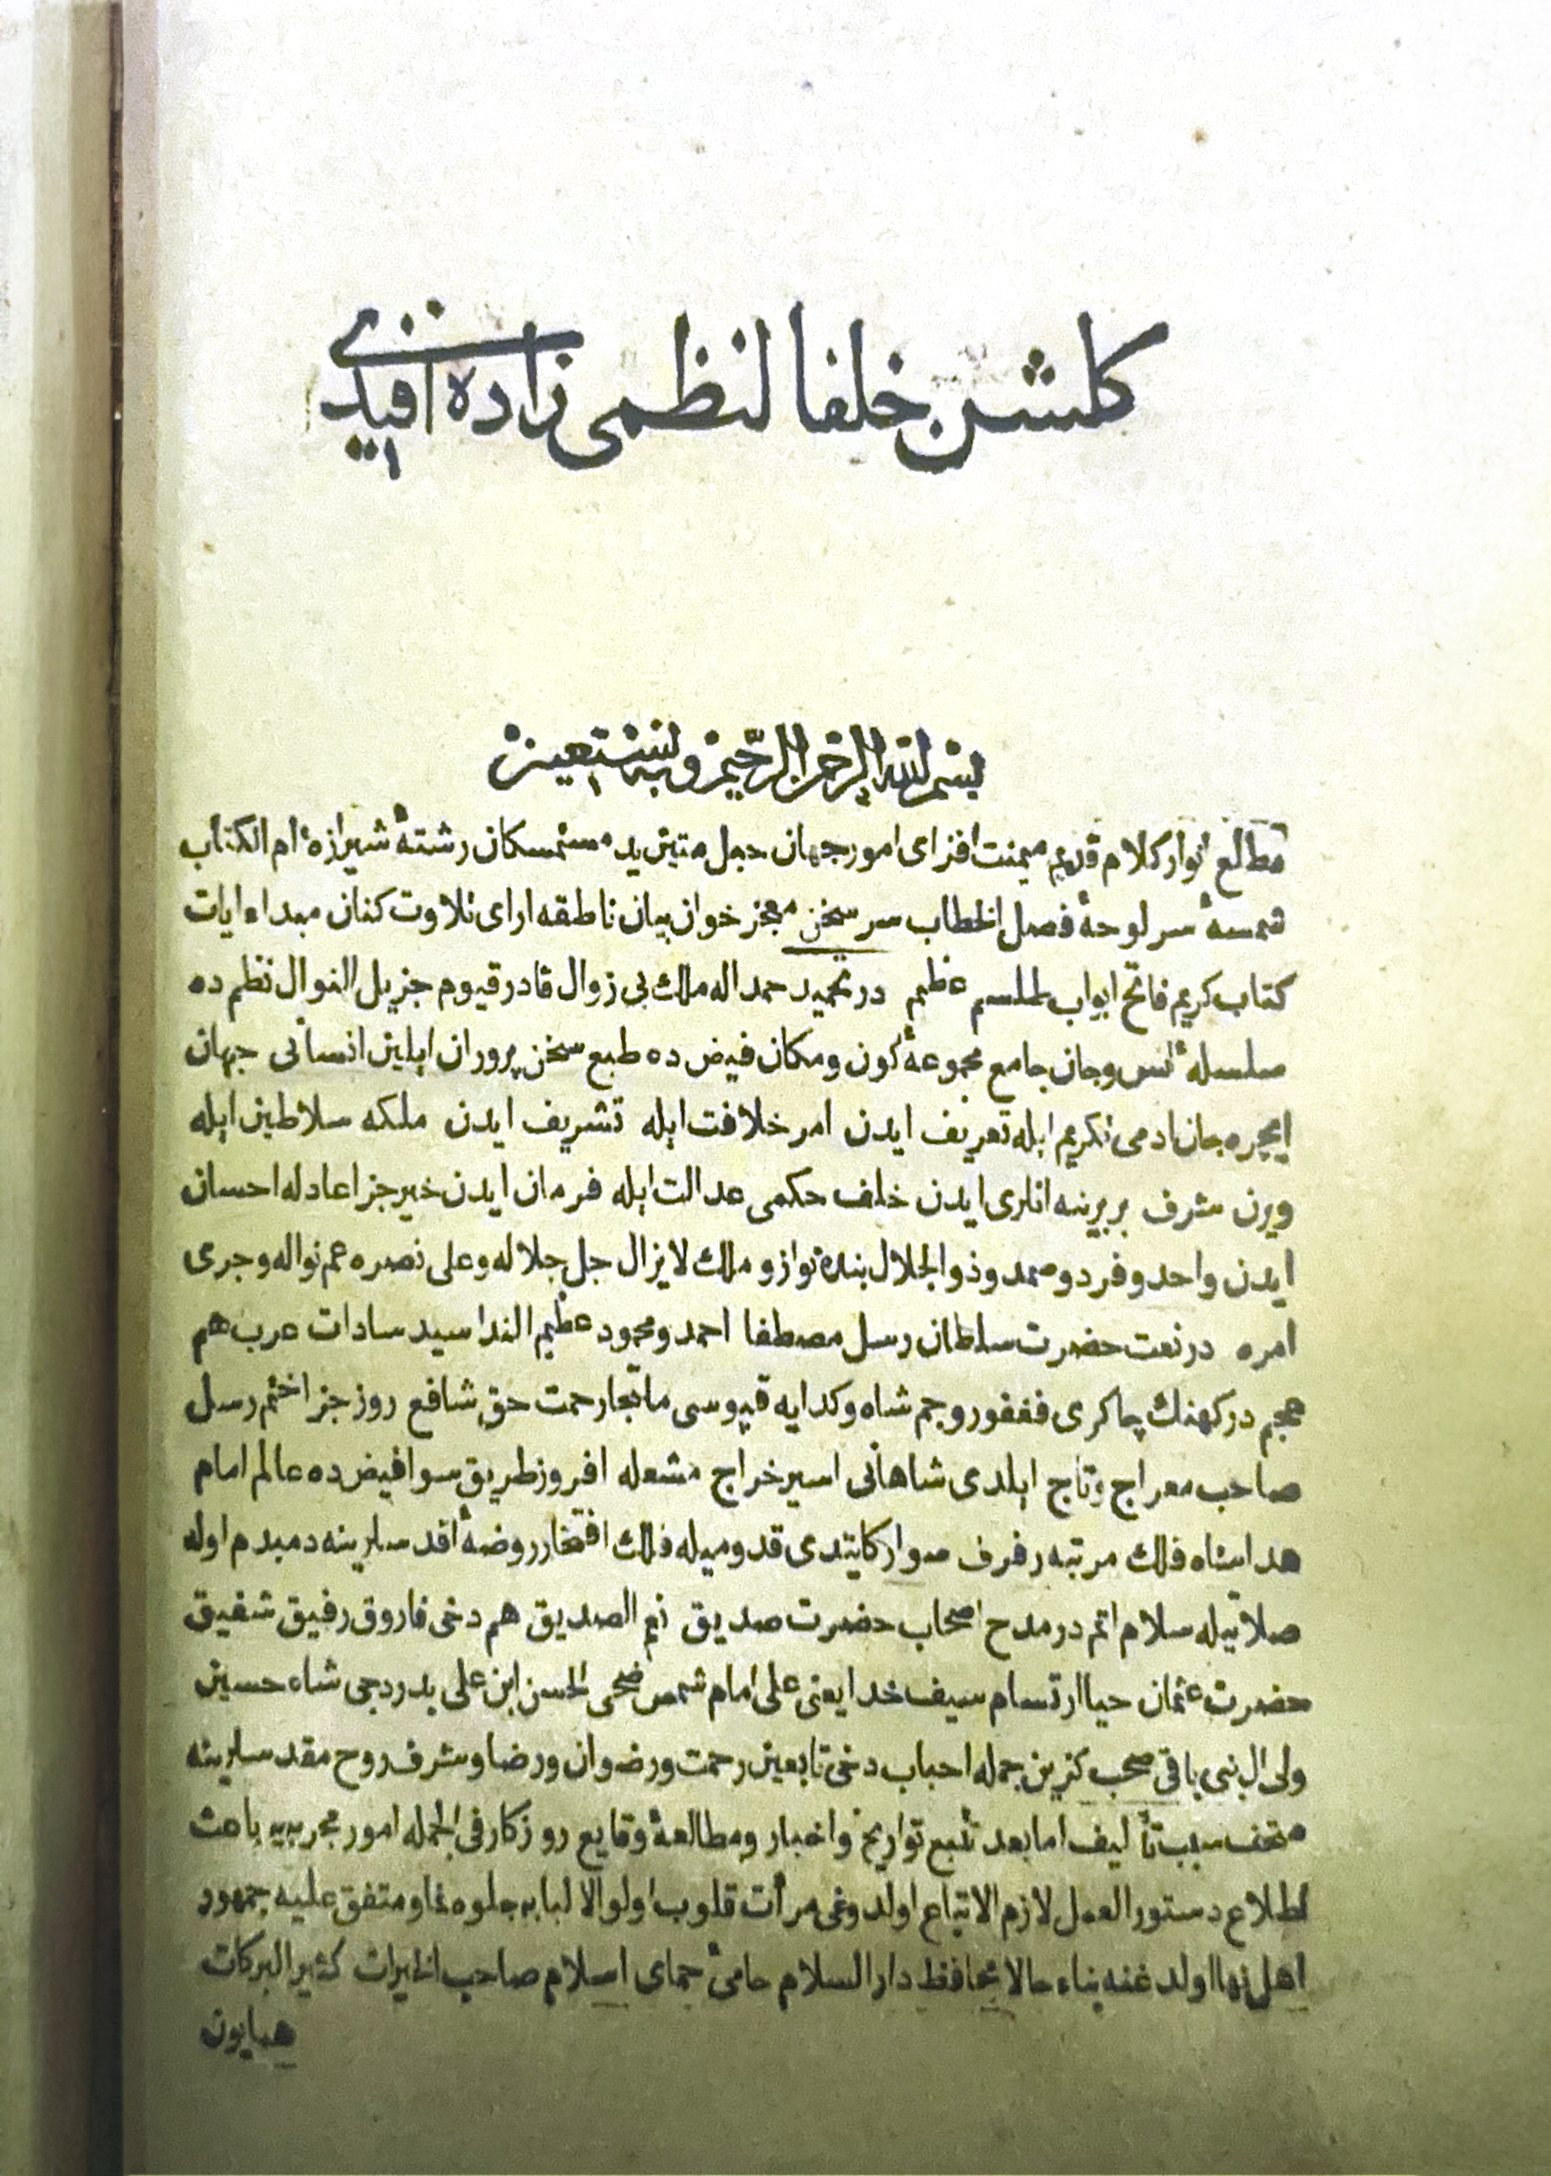 كلشن خلفا لنظمى زاده افندى
بسم الله الرحمن الرحيم وبه نستعين
مطالع انوار كلام قديم ميمنت افزاى امور جهان حبل متين يد مستمسكان رشتۀ شيرازۀ ام الكتاب
شمسۀ سر لوحۀ فصل الخطاب سر سخن معجز خوان بيان ناطقه اراى تلاوت كنان مبداء ايات
كتاب كريم فاتح ابواب طلسم عظيم در تحميد حمد اله ملك بى زوال قادر قيوم جزيل النوال نظم ده
سلسلۀ انس وجان جامع مجموعۀ كون ومكان فيض ده طبع سخن پروران ايلين انسانى جهان
ايچره جان ادمى تكريم ايله تعريف ايدن امر خلافت ايله تشريف ايدن ملكه سلاطين ايله
ويرن شرف بربرينه انلرى ايدن خلف حكمى عدالت ايله فرمان ايدن خير جزا عادله احسان
ايدن واحد وفرد وصمد وذو الجلال بنده نواز و ملك لا يزال جل جلاله وعلى نصره عم نواله وجرى
امره در نعت حضرت سلطان رسل مصطفا احمد ومحمود عظيم الندا سيد سادات عرب هم
عجم دركهنك چاكرى فغفور وجم شاه وكدايه قپوسى ملتجا رحمت حق شافع روز جزا ختم رسل
صاحب معراج وتاج ايلدى شاهانى اسير خراج مشعله افروز طريق سوا فيض ده عالم امام
هدا شاه فلك مرتبه رفرف سوار كايتدى قدوميله فلك افتخار روضۀ اقدسلرينه دمبدم اوله
صلاتيله سلام اتم در مدح اصحاب حضرت صديق نعم الصديق هم دخى فاروق رفيق شفيق
حضرت عثمان حيا ارتسام سيف خدا يعنى على امام شمس ضحى الحسن ابن على بدر دجى شاه حسين
ولى ال نبى باقى صحب كزين جمله احباب دخى تابعين رحمت ورضوان ورضا وشرف روح مقدسلرينه
متحف سبب تأليف اما بعد تتبع تواريخ واخبار ومطالعۀ وقايع روزكار فى الجمله امور مجربه يه باعث
اطلاع دستور العمل لازم الاتباع اولدوغى مرأت قلوب اولو الالبابه جلوه نما ومتفق عليه جمهور
اهل نها اولدغنه بناء حالا محافظ دار السلام حامئ حماى اسلام صاحب الخيرات كثير البركات
همايون